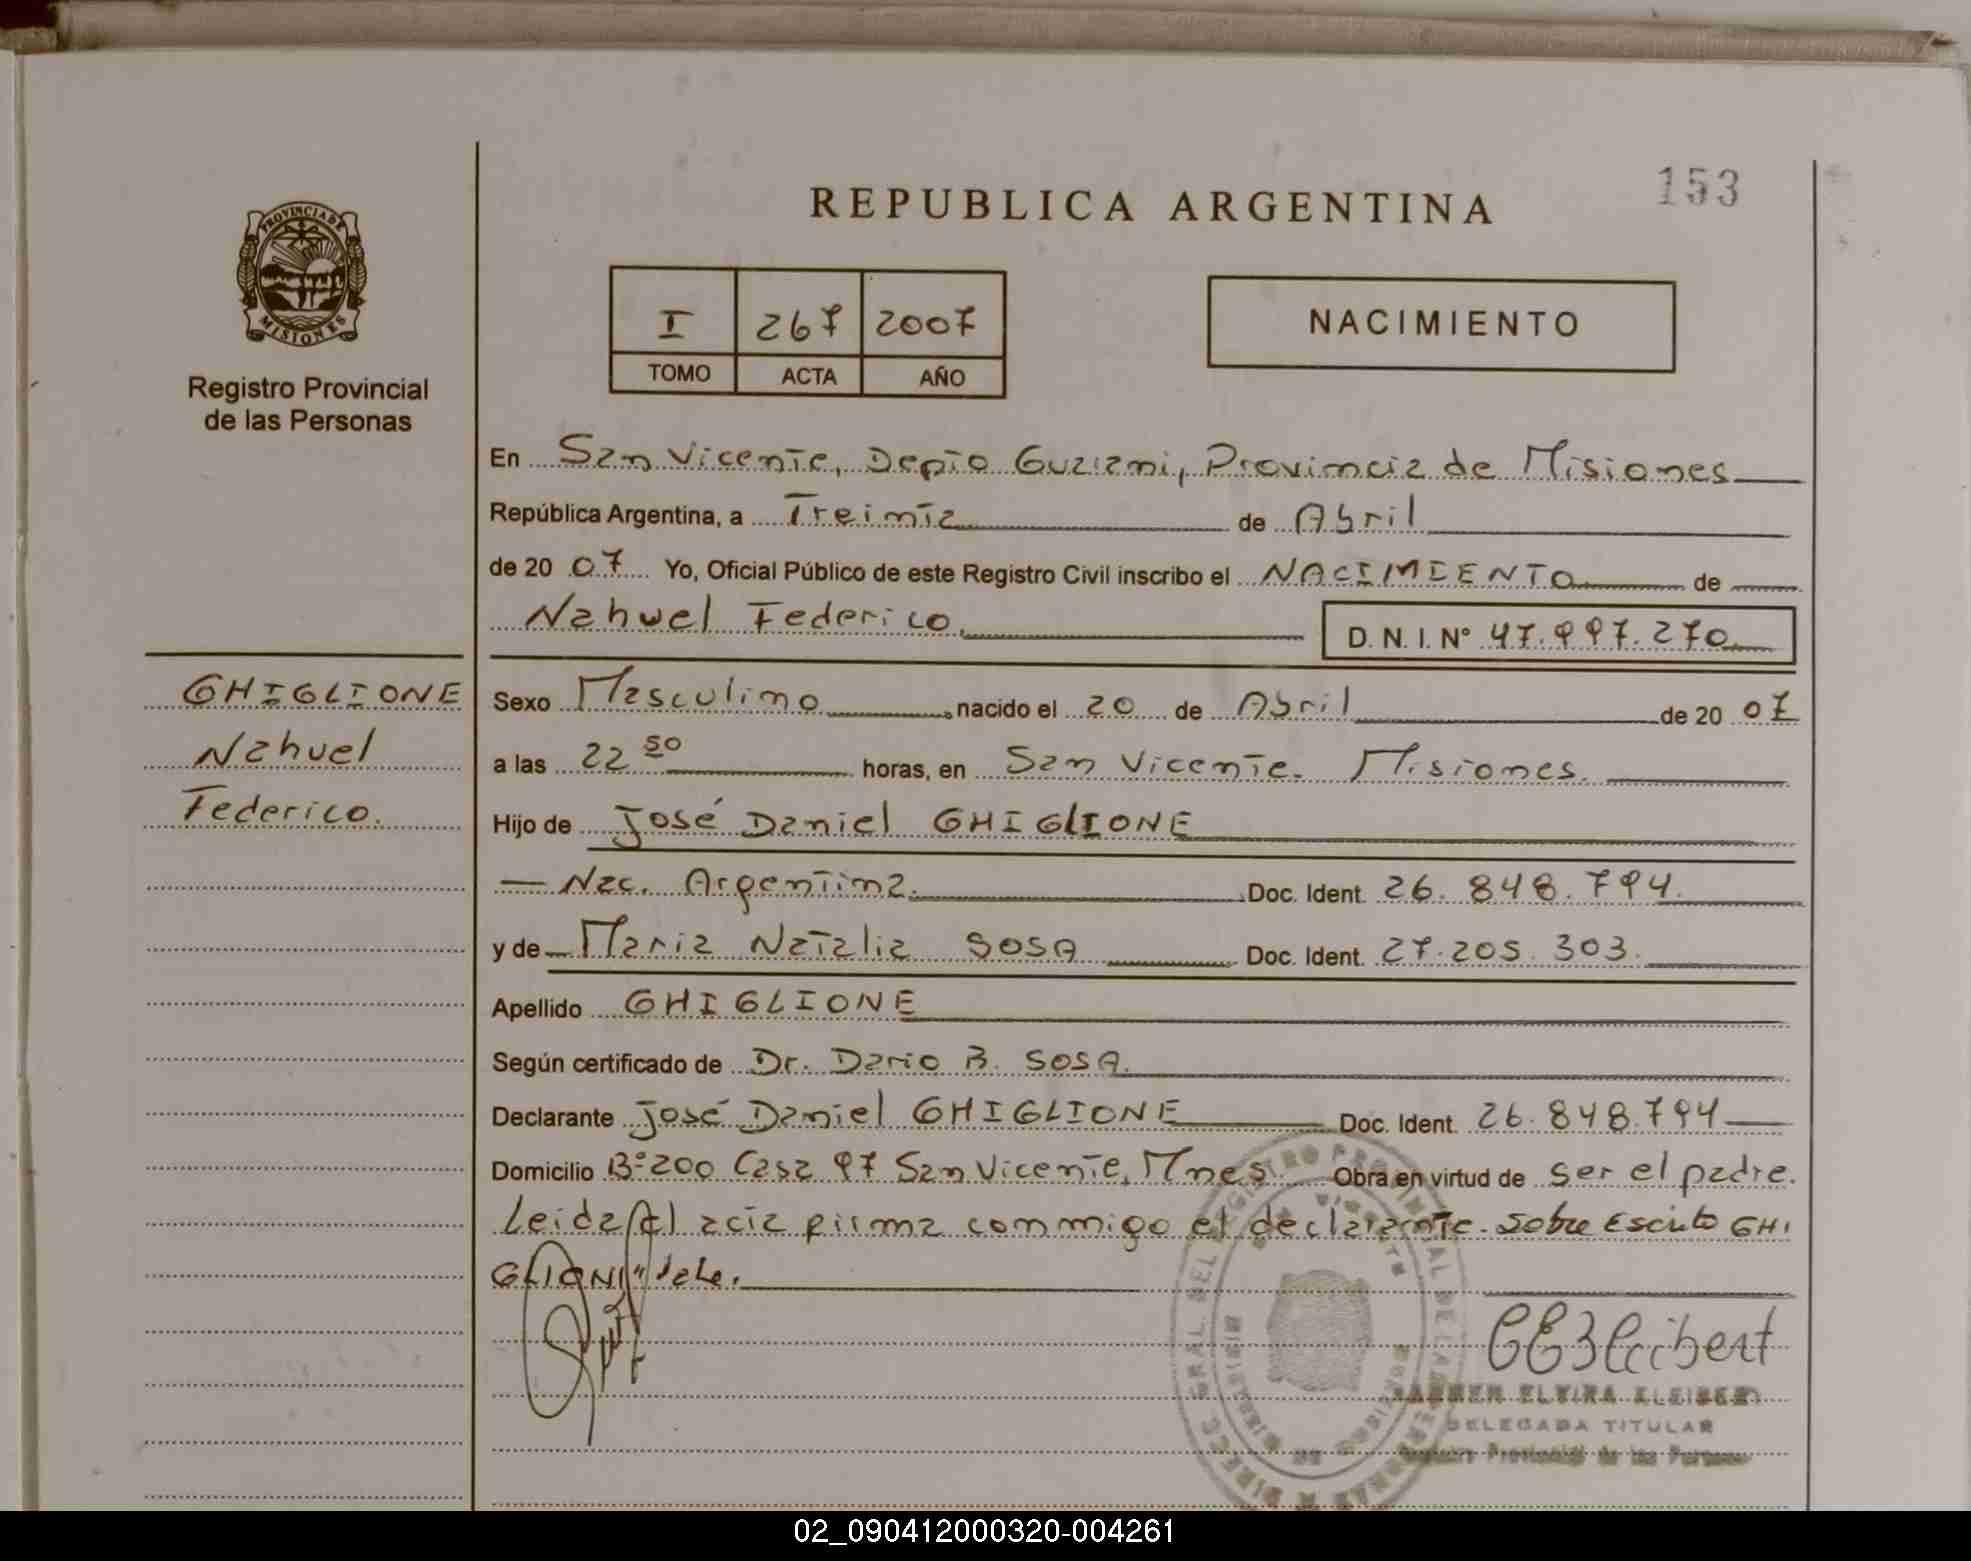 153
REPUBLICA ARGENTINA
PROVINCIA DE
MISIONES
Registro Provincial
de las Personas
I 267 2007
TOMO ACTA AÑO
NACIMIENTO
En San Vicente, Depto Guarani, Provincia de Misiones
República Argentina, a Treinta de Abril
de 20 07 Yo, Oficial Público de este Registro Civil inscribo el NACIMIENTO de
Nahuel Federico D. N. I. Nº 47.997.270
GHIGLIONE
Nahuel
Federico.
Sexo Masculino, nacido el 20 de Abril de 20 07
a las 22 50 horas, en San Vicente. Misiones.
Hijo de José Daniel GHIGLIONE
Nac. Argentina. Doc. Ident. 26.848.794.
y de Maria Natalia SOSA Doc. Ident. 27.205.303.
Apellido GHIGLIONE
Según certificado de Dr. Dario B. SOSA.
Declarante José Daniel GHIGLIONE Doc. Ident. 26.848.794
Domicilio Bº 200 Casa 97 San Vicente, Mnes Obra en virtud de ser el padre.
Leida el acta firma conmigo el declarante. Sobre Escrito GHI
GLIONI" Vale.
CARMEN ELVIRA KLEIBERT
DELEGADA TITULAR
Registro Provincial de las Personas
02_090412000320-004261